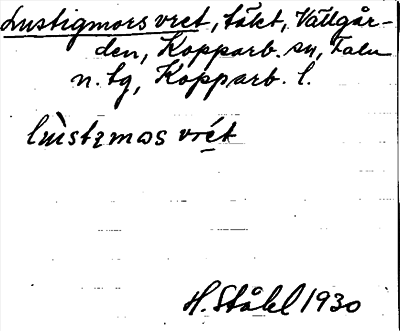 Lustigmors vret, täkt, Vällgår-
den, Kopparb. sn, Falu
n. tg, Kopparb. l.
lùstɩmɷs vrét
H. Ståhl 1930